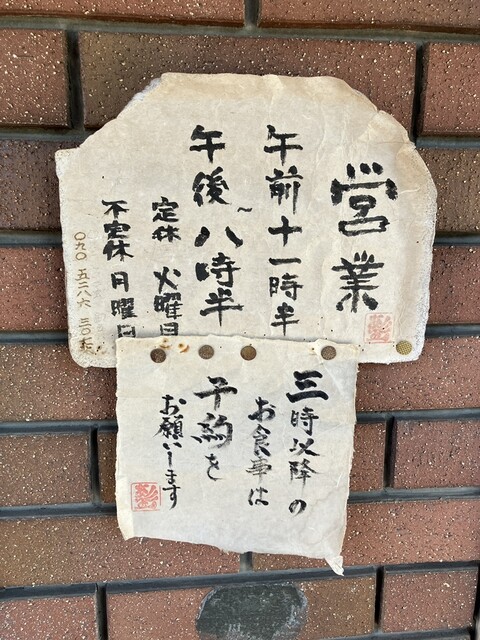 営業
午前十一時半
～
午後八時半
定休 火曜日
不定休 月曜日
三時以降の
お食事は
予約を
お願いします